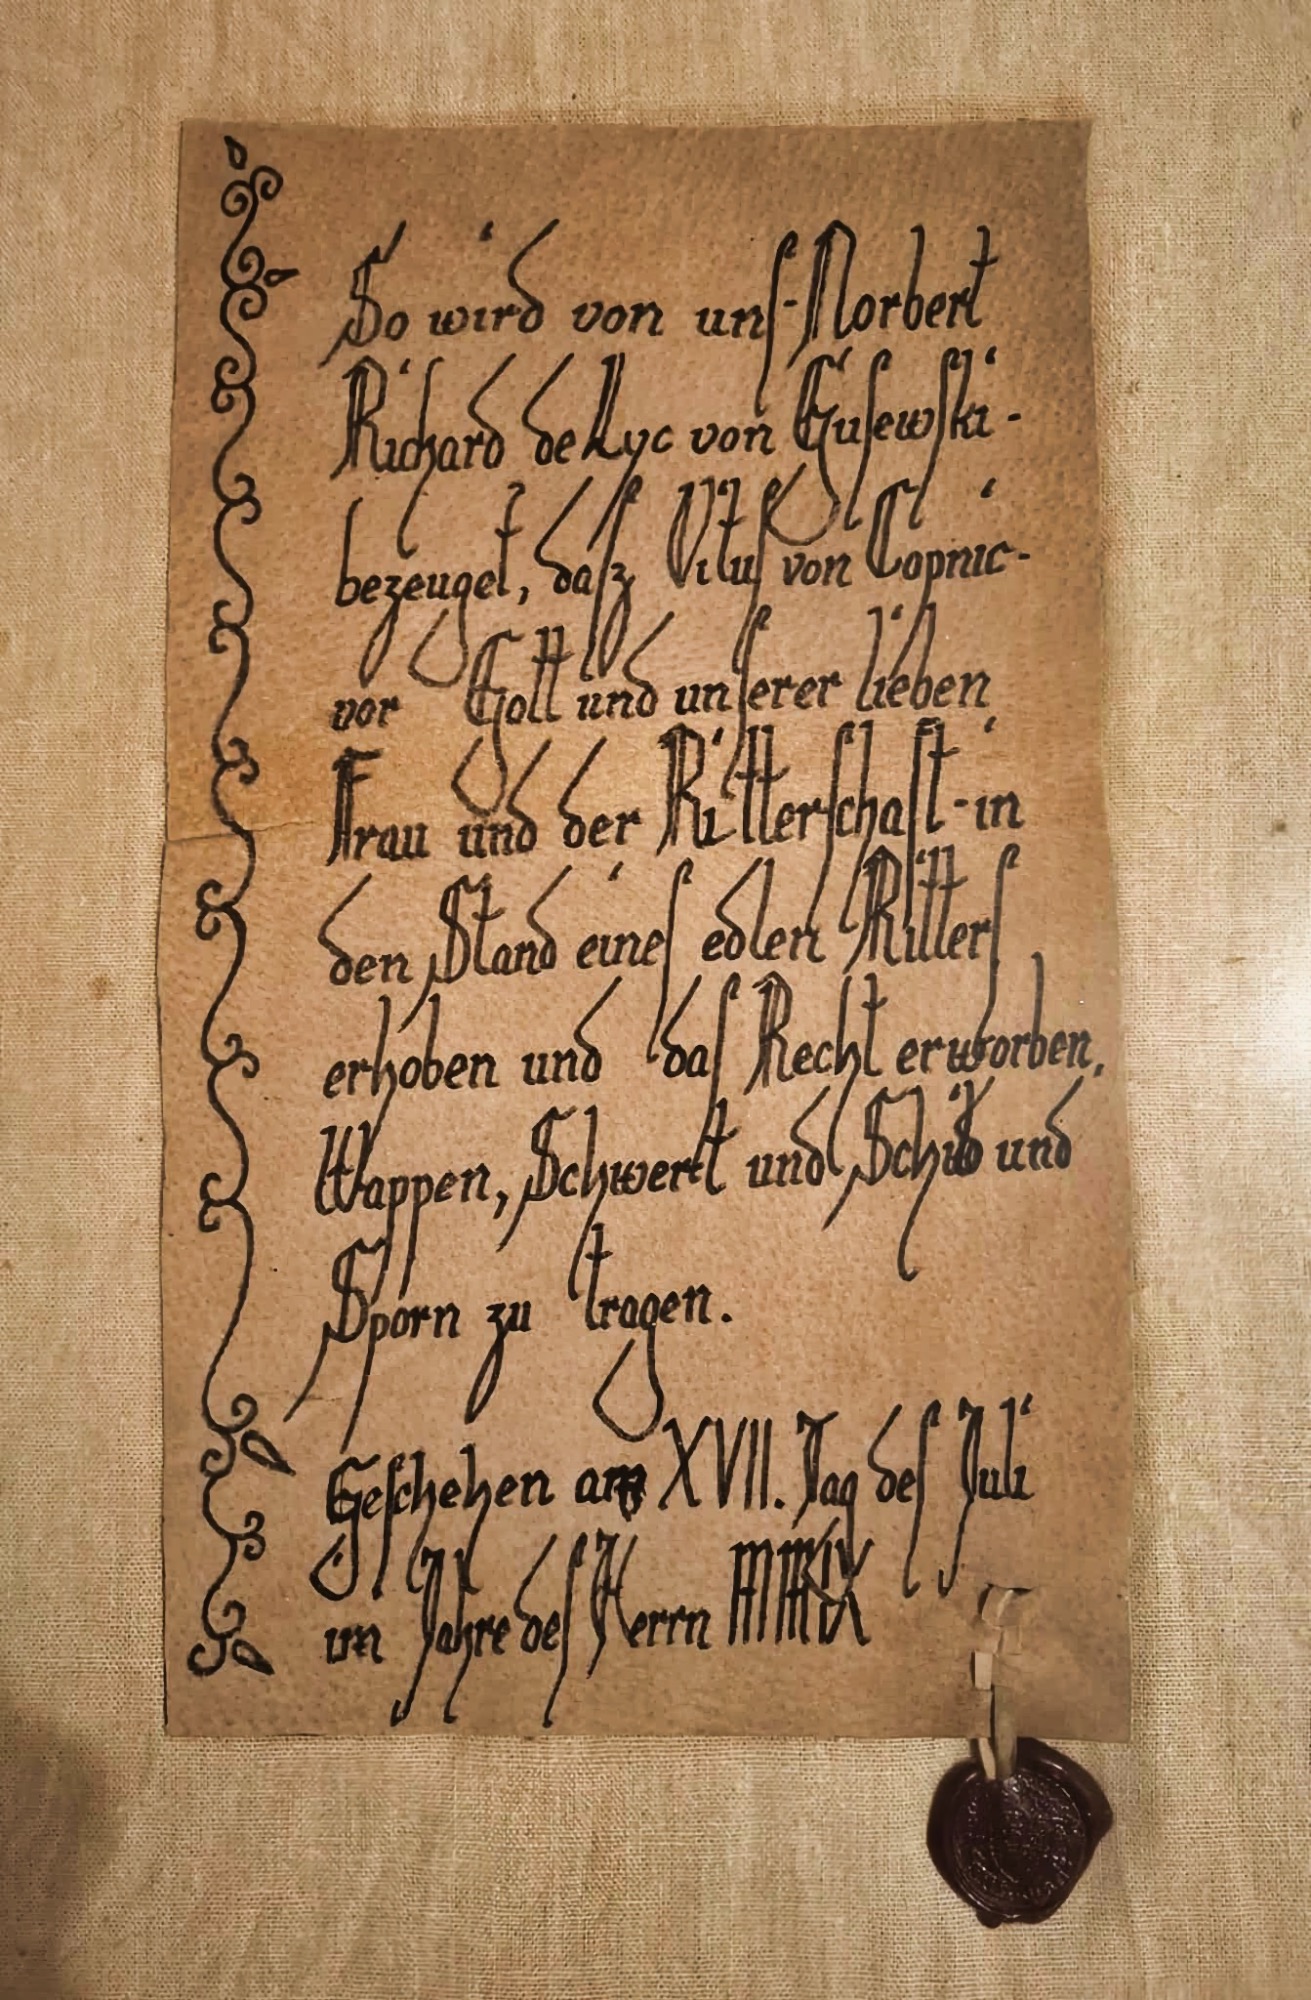 So wird von unſ-Norbert
Richard de Lyc von Guſewſki-
bezeuget, daſz Vituſ von Copnic-
vor Gott und unſerer lieben
Frau und der Ritterſchaft-in
den Stand eineſ edlen Ritterſ
erhoben und daſ Recht erworben,
Wappen, Schwert und Schild und
Sporn zu tragen.
Geſchehen am XVII. Tag deſ Juli
im Jahre deſ Herrn MMIX